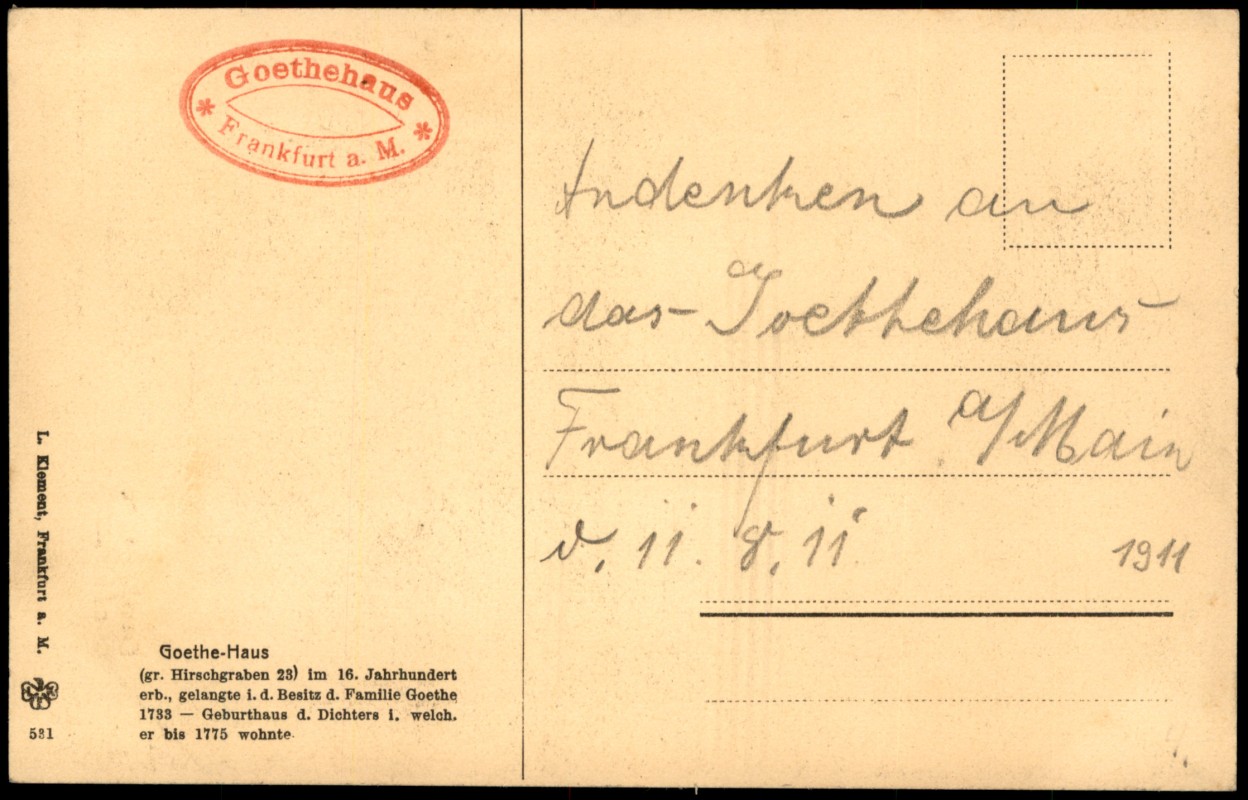 Goethehaus
* Frankfurt a. M. *
L. Klement, Frankfurt a. M.
531
Goethe-Haus
(gr. Hirschgraben 23) im 16. Jahrhundert
erb., gelangte i. d. Besitz d. Familie Goethe
1733 — Geburthaus d. Dichters i. welch.
er bis 1775 wohnte.
Andenken an
das Goethehaus
Frankfurt a/Main
d. 11. 8. 11
1911